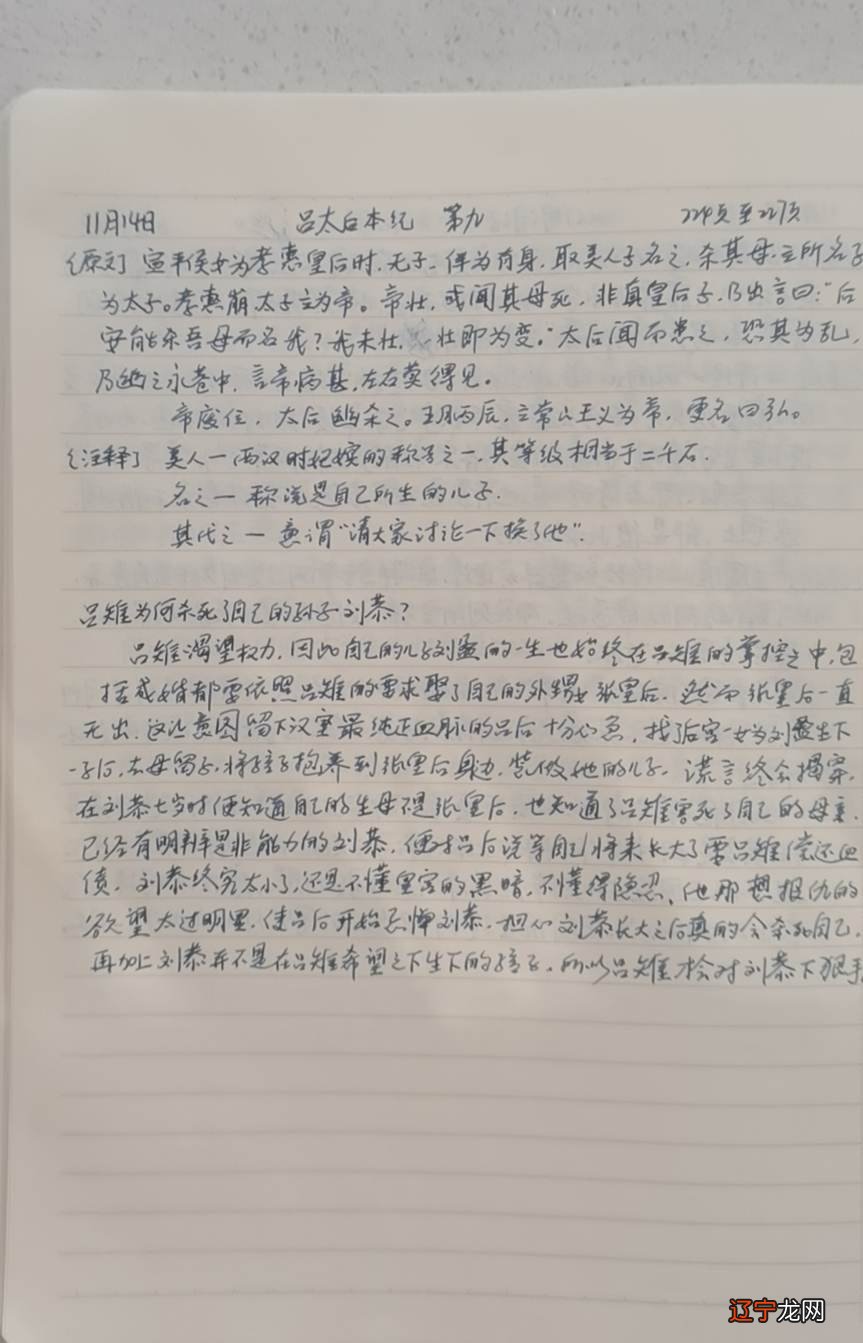 11月14日 吕太后本纪 第九 224页至227页
〔原文〕宣平侯女为孝惠皇后时,无子,佯为有身,取美人子名之,杀其母,立所名子
为太子。孝惠崩,太子立为帝。帝壮,或闻其母死,非真皇后子,乃出言曰:“后
安能杀吾母而名我?我未壮,壮即为变。”太后闻而患之,恐其为乱,
乃幽之永巷中,言帝病甚,左右莫得见。
帝废位,太后幽杀之。五月丙辰,立常山王义为帝,更名曰弘。
〔注释〕美人一两汉时妃嫔的称号之一,其等级相当于二千石.
名之一 称说是自己所生的儿子.
其代之一 意谓“请大家讨论一下换了他”.
吕雉为何杀死了自己的孙子刘恭?
吕雉渴望权力,因此自己的儿子刘盈的一生也始终在吕雉的掌控之中,包
括成婚都要依照吕雉的要求娶了自己的外甥女张皇后。然而张皇后一直
无出,这让意图留下汉室最纯正血脉的吕后十分心急,找了后宫一女为刘盈生下
一子后,去母留子,将孩子抱养到张皇后身边,装做她的儿子。谎言终会揭穿,
在刘恭七岁时便知道自己的生母不是张皇后,也知道了吕雉害死了自己的母亲.
已经有明辨是非能力的刘恭,便对吕后说等自己将来长大了要吕雉偿还血
债。刘恭终究太小了,还是不懂皇宫的黑暗,不懂得隐忍、他那想报仇的
欲望太过明显,使吕后开始忌惮刘恭,担心刘恭长大之后真的会杀死自己,
再加上刘恭并不是在吕雉希望之下生下的孩子,所以吕雉才会对刘恭下狠手
辽宁龙网